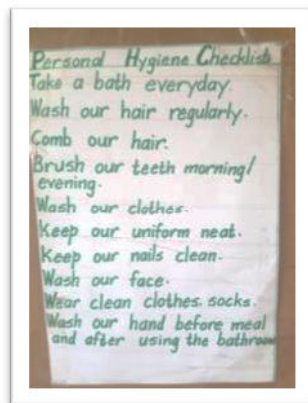 Personal Hygiene Checklist
Take a bath everyday.
Wash our hair regularly.
Comb our hair.
Brush our teeth morning/
evening.
Wash our clothes.
Keep our uniform neat.
Keep our nails clean.
Wash our face.
Wear clean clothes, socks.
Wash our hand before meal
and after using the bathroom